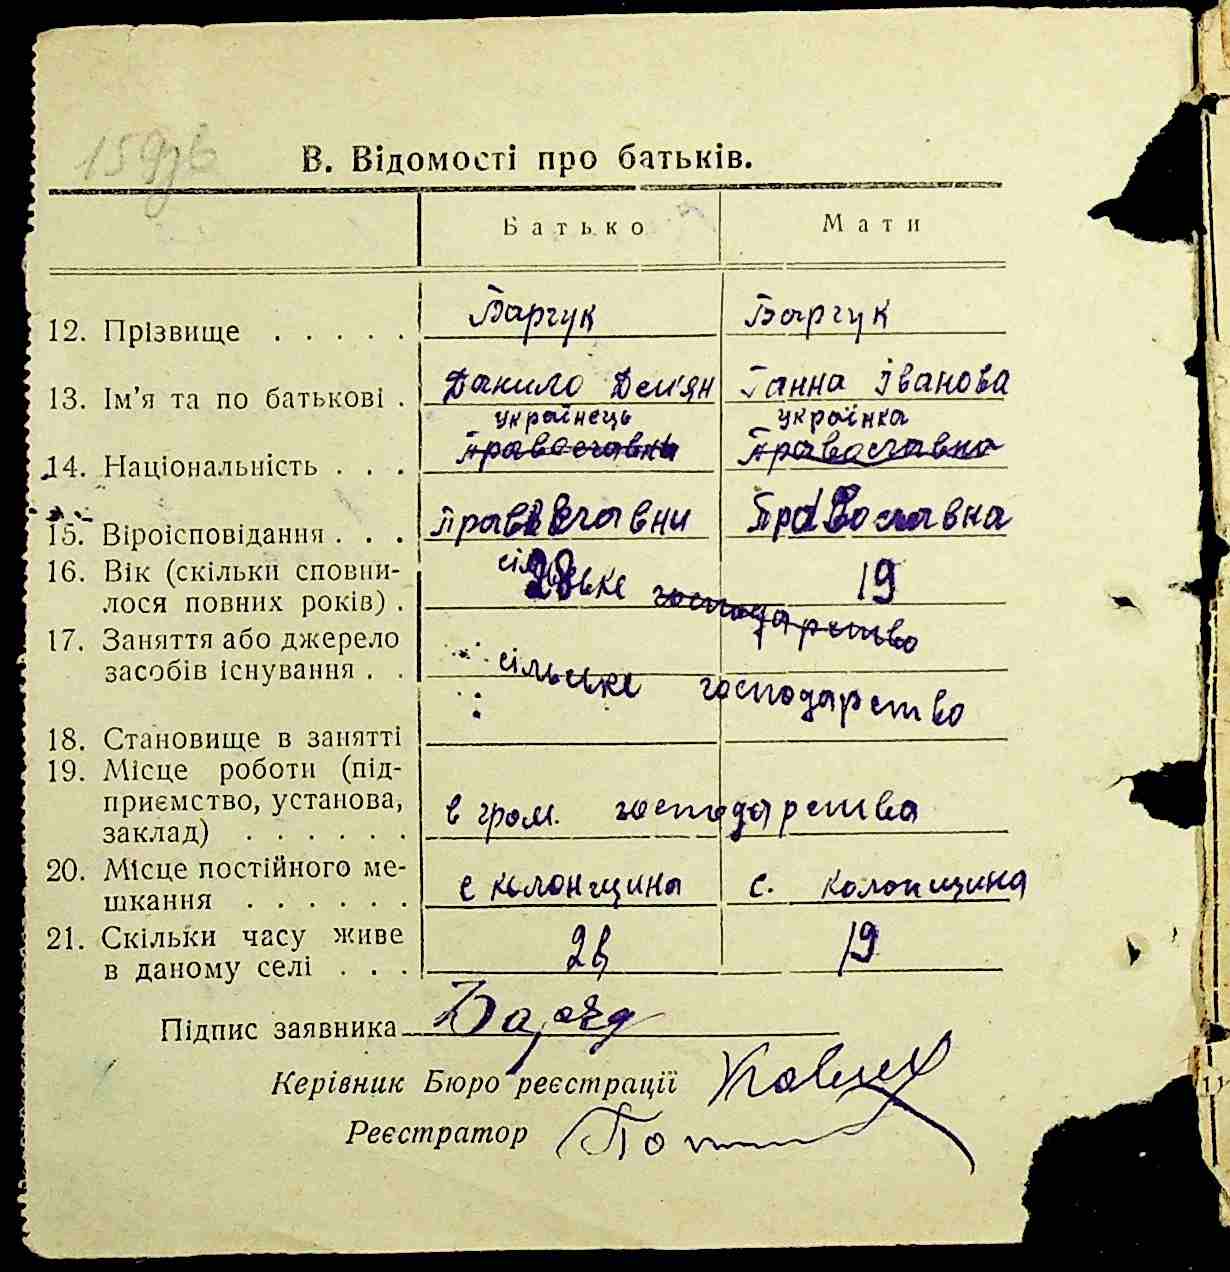 В. Відомості про батьків.
Батько Мати
12. Прізвище . . . . . Барчук Барчук
13. Ім'я та по батькові . Данило Дем'ян Ганна Іванова
українець українка
14. Національність . . . Православни Православна
15. Віроісповідання . . . Православни Православна
16. Вік (скільки сповни-
лося повних років) . 28 19
сільське господарство
17. Заняття або джерело
засобів існування . . сільське господарство
18. Становище в занятті
19. Місце роботи (під-
приємство, установа,
заклад) . . . . . . в гром. господарства
20. Місце постійного ме-
шкання . . . . . . с колонщина с. колонщина
21. Скільки часу живе
в даному селі . . . 28 19
Підпис заявника
Керівник Бюро реєстрації
Реєстратор